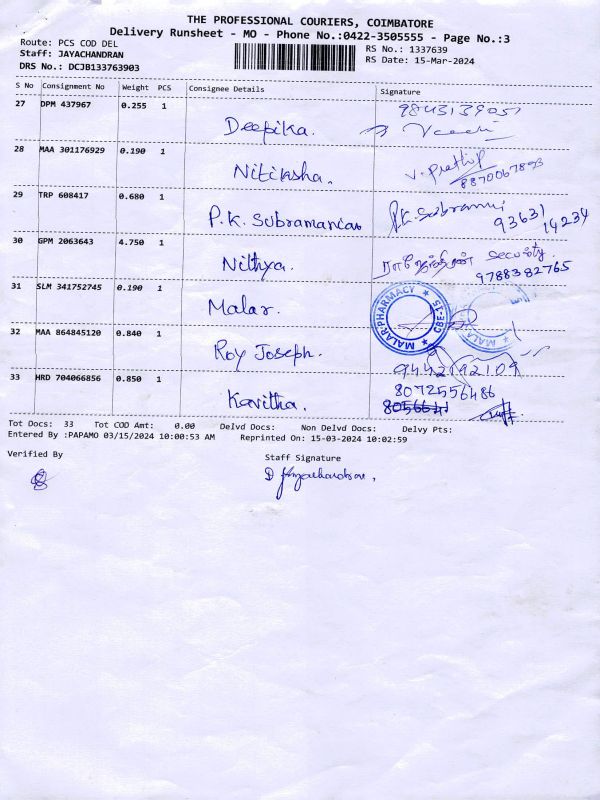 THE PROFESSIONAL COURIERS, COIMBATORE
Delivery Runsheet - MO - Phone No.:0422-3505555 - Page No.:3
Route: PCS COD DEL
RS No.: 1337639
Staff: JAYACHANDRAN
RS Date: 15-Mar-2024
DRS No.: DCJB133763903
S No Consignment No Weight PCS Consignee Details Signature
27 DPM 437967 0.255 1 Deepika. 9843139051
28 MAA 301176929 0.190 1 Nitiksha. V. Prathip
8870067893
29 TRP 608417 0.680 1 P.K. Subramanian P.K. Subramani
93631 14234
30 GPM 2063643 4.750 1 Nithya. ராஜேந்திரன் Security.
9788382765
31 SLM 341752745 0.190 1 Malar. MALAR PHARMACY CBE-15
32 MAA 864845120 0.840 1 Roy Joseph. 9442192109
33 HRD 704066856 0.850 1 Kavitha. 8072556486
Tot Docs: 33 Tot COD Amt: 0.00 Delvd Docs: Non Delvd Docs: Delvy Pts:
Entered By :PAPAMO 03/15/2024 10:00:53 AM Reprinted On: 15-03-2024 10:02:59
Verified By Staff Signature